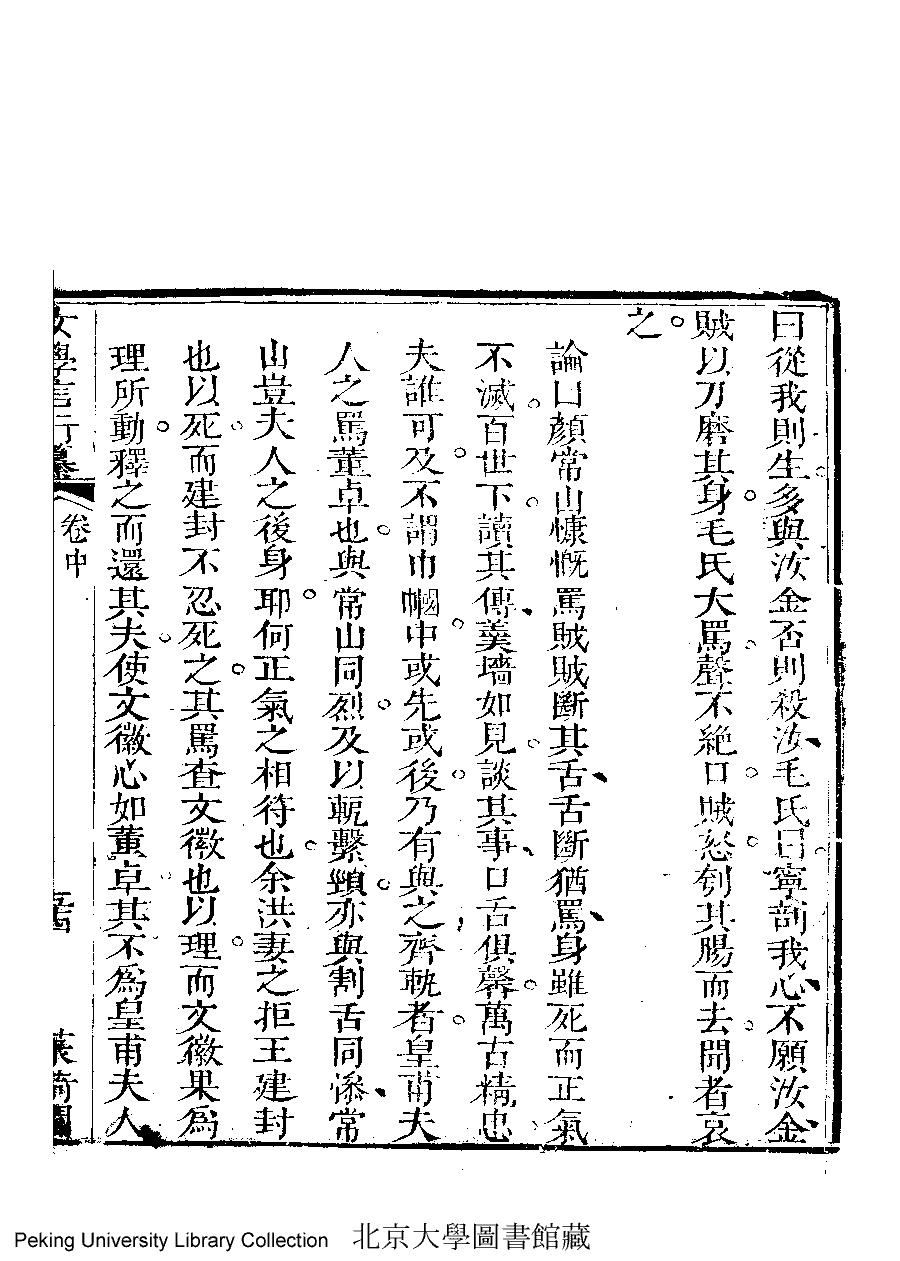 曰從我則生多與汝金否則殺汝毛氏曰寧剖我心不願汝金
賊以刀磨其身毛氏大罵聲不絕口賊怒刳其腸而去聞者哀
之
論曰顏常山慷慨罵賊賊斷其舌舌斷猶罵身雖死而正氣
不滅百世下讀其傳羹墻如見談其事口舌俱馨萬古精忠
夫誰可及不謂巾幗中或先或後乃有與之齊軌者皇甫夫
人之罵董卓也與常山同烈及以軛繫頸亦與割舌同慘常
山豈夫人之後身耶何正氣之相符也余洪妻之拒王建封
也以死而建封不忍死之其罵查文徽也以理而文徽果為
理所動釋之而還其夫使文徽心如董卓其不為皇甫夫人
女學言行纂
卷中
Peking University Library Collection 北京大學圖書館藏